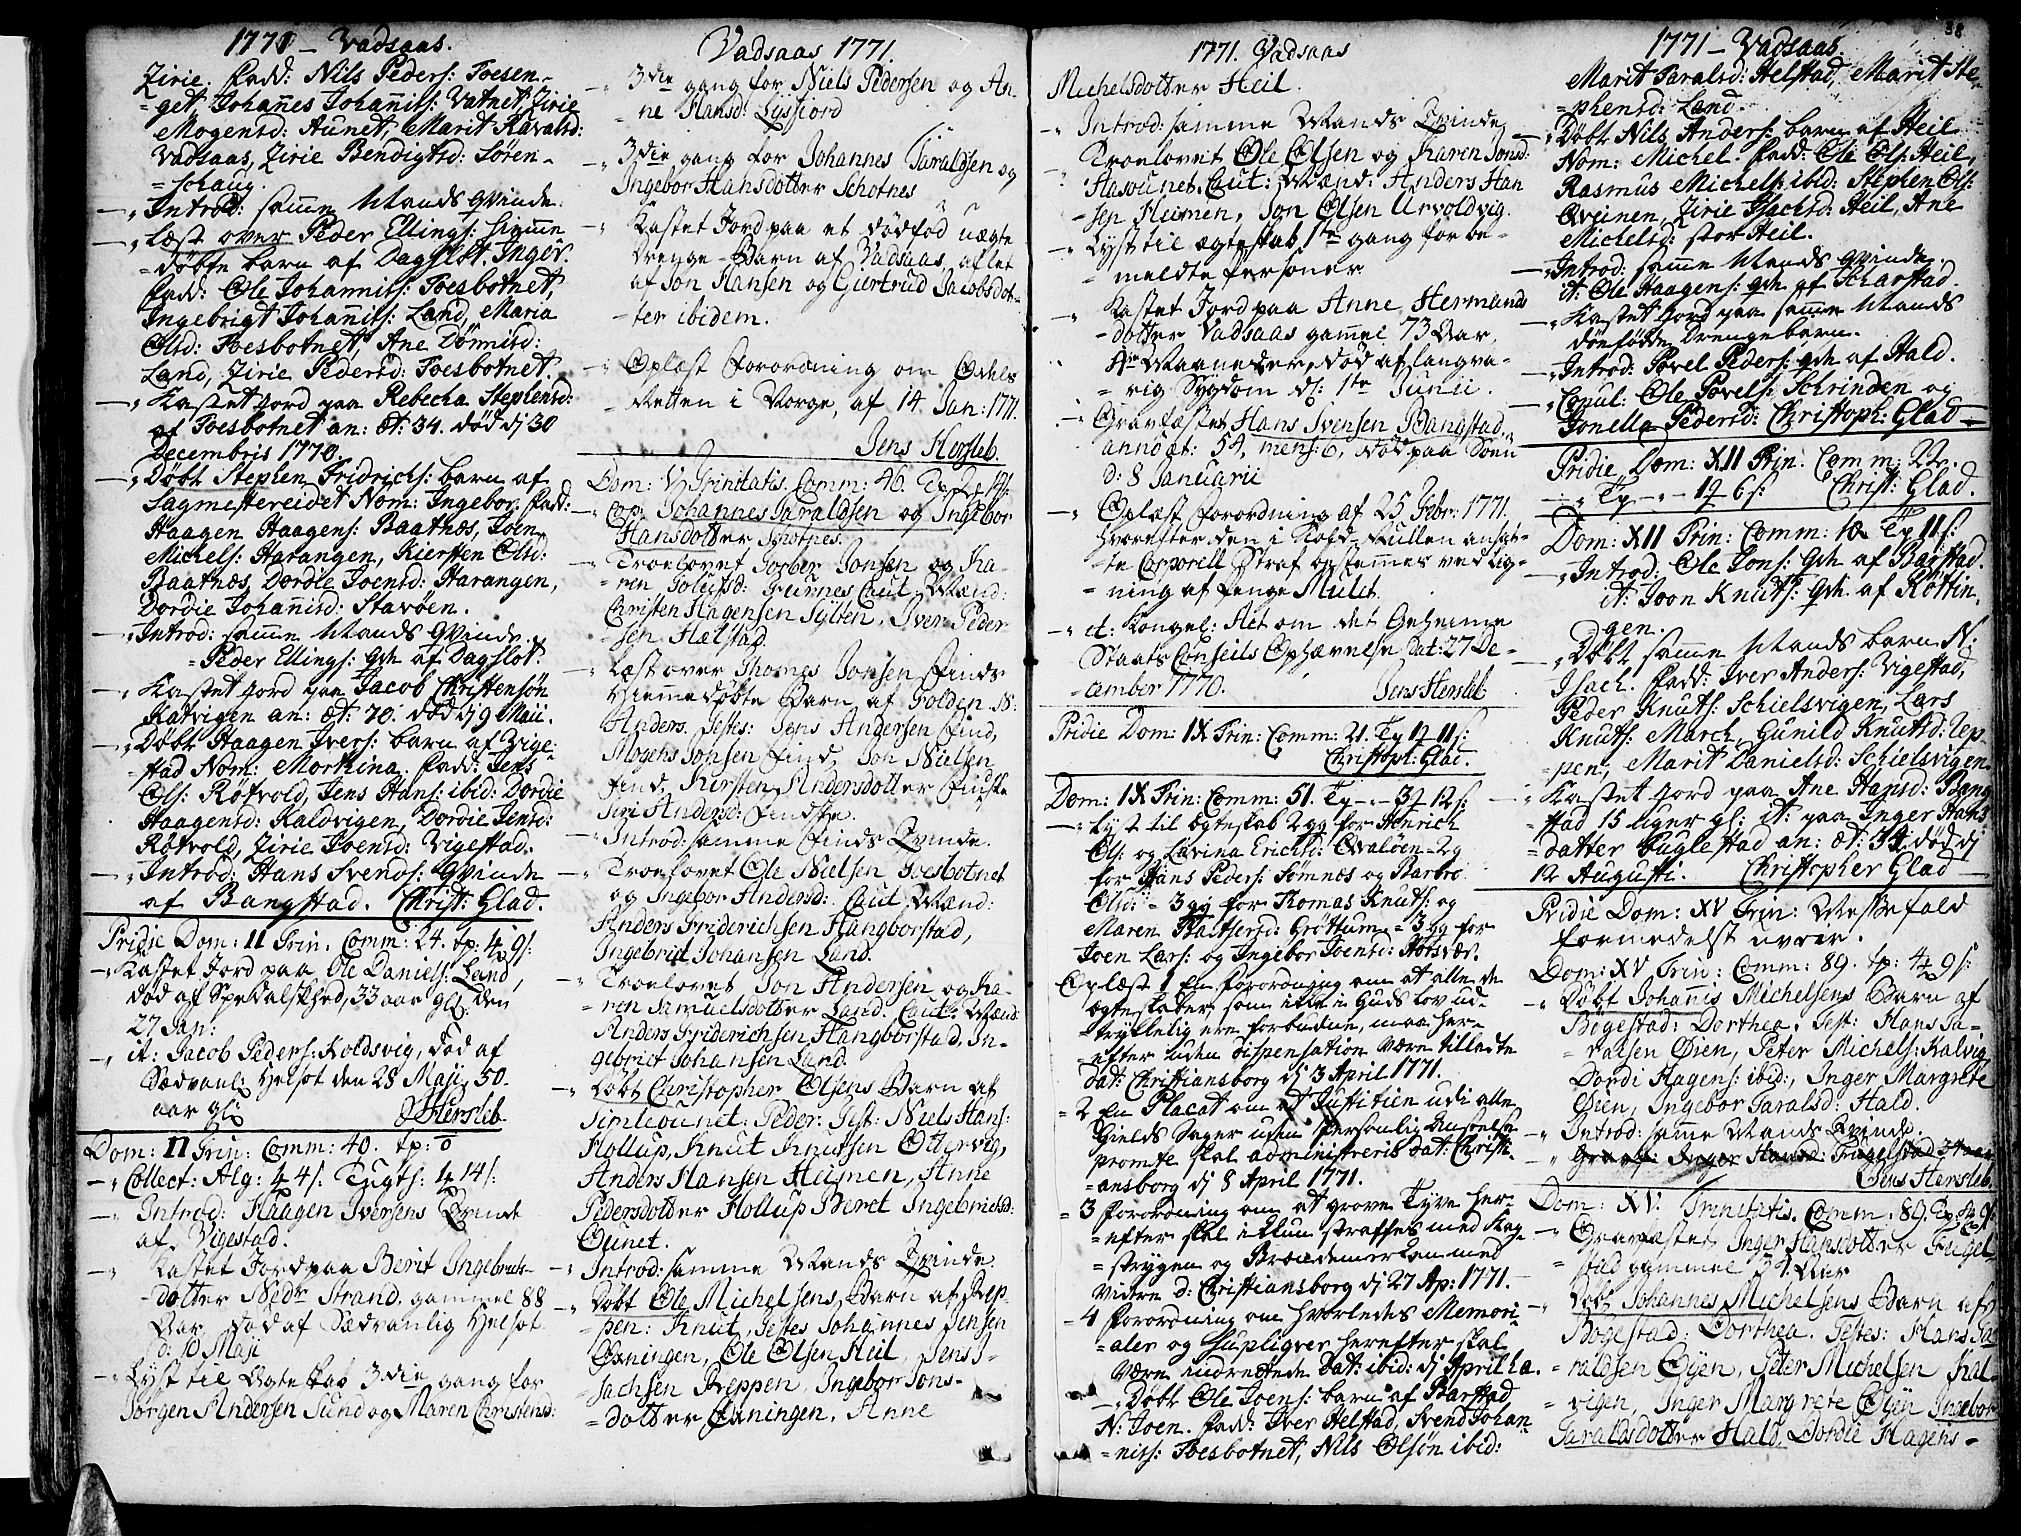 1771 - Vadsaas.
Zirie. Fadd: Nils Peders: Foesen-
=get, Johañes Johañits: Vatnet, Zirie
Mogensd: Aunet, Marit Ravalsd:
Vadsaas, Zirie Bendigtsd: Søren-
=schaug.
Introd: saṁe Mands Qvinde.
Læst over Peder Ellings: hiemme
=døbte barn af Dagslot. Inger.
Fadd: Ole Johannits: Foesbotnet,
Ingebrigt Johañits: Land, Maria
Olsd: Foesbotnet, Ane Dønnisd:
Land, Zirie Pedersd: Foesbotnet.
Kastet Jord paa Rebecha Stephensd:
af Foesbotnet an: æt: 34. død dj 30
Decembris 1770.
Døbt Stephen Fridrichs: barn af
Sagmestereidet Nom: Ingebor. Fadd:
Haagen Haagens: Baatnæs, Joen
Michels: Harangen, Kiersten Olsd:
Baatnæs, Dordie Joensd: Harangen,
Dordie Johañisd: Stavøen.
Introd: saṁe Mands Qvinde.
=Peder Ellings: Qvh af Dagslot.
Kastet Jord paa Jacob Christensøn
Kalvigen an: æt: 70. død dj 9 Maii.
Døbt Haagen Ivers: barn af Vige-
=stad Nom: Morthina. Fadd: Jens
Ols: Røtvold, Jens Hans: ibid: Dordie
Haagensd: Kaldvigen, Dordie Jensd:
Røtvold, Zirie Joensd: Vigestad.
Introd: Hans Svends: Qvinde
af Bangstad. Christ: Glad.
Pridie Dom: II Trin: Comm: 24. tp: 4 9s:
Kastet Jord paa Ole Daniels: Land,
død af Spedalskhed, 33 aar gl: den
27 Jan:
it: Jacob Peders: Koldsvig, død af
Sædvanl: Helsot den 28 Maji, 50.
aar gl: J Hersleb.
Dom: II Trin: Comm: 40. tp: 0
Collect: Alg: 4 4s: Tugts: 4 14s:
Introd: Haagen Iversens Qvinde
af Vigestad.
Kastet Jord paa Berit Ingebrets-
dotter Nedr Strand, gammel 88
Aar død af Sædvanlig Helsot
d: 10 Maji
Lyst til Ægteskab 3die gang for
Jørgen Andersen Sund og Maren Christensd:
Vadsaas 1771.
3die gang for Niels Pedersen og An-
ne Hansd: Lyssiord
3die gang for Johannes Taraldsen og
Ingebor Hansdotter Schotnes
Kastet Jord paa et dødfød uægte
Drenge-Barn af Vadsaas, aflet
af Jon Hansen og Giertrud Jacobsdot-
ter ibidem.
Oplæst Forordning om Odels
Retten i Norge, af 14 Jan: 1771.
Jens Hersleb.
Dom: V Trinitatis. Comm: 46. Tp
Cop: Johannes Taraldsen og Ingebor
Hansdotter Schotnes.
Troelovet Torber Jonsen og Ka-
ren Solutsd: Furnes Caut: Mænd:
Christen Hagensen Sylten, Iver Peder
sen Hælstad.
Læst over Thomes Jonsen Finds
Hiemmedøbte Barn af Folden N:
Anders. Testes: Jens Andersen Find,
Mogens Jonsen Find, Jon Nielsen
Find, Kirsten Andersdotter Finske
Siri Andersd: Findske.
Introd: samme Finds Qvinde.
Troelovet Ole Nielsen Foesbotnet
og Ingebor Andersd: Caut: Mænd:
Anders Friderichsen Hangborstad,
Ingebrict Johansen Land.
Troelovet Jon Andersen og Ka-
ren Samuelsdotter Land. Caut: Mænd
Anders Friderichsen Hangborstad, In-
gebrict Johansen Land.
Døbt Christopher Olsens Barn af
Simleounet: Peder. Test: Niels Hans:
Hollup, Knut Knutsen Ottervig,
Anders Hansen Heimen, Anne
Pedersdotter Hollup Beret Ingebrictsd:
Ounet.
Introd: samme Mands Qvinde.
Døbt Ole Michelsens Barn af Rep-
pen: Knut, Testes Johannes Jensen
Oxningen, Ole Olsen Heil, Jens I-
sachsen Reppen, Ingebor Jons-
dotter Oxningen, Anne
1771. Vadsaas
Michelsdotter Heil.
Introd: samme Mands Qvinde
Troelovet Ole Olsen og Karen Jonsd:
Hasounet. Caut: Mænd: Anders Han
sen Heimen, Jon Olsen Urvoldvig.
Lyst til ægteskab 1te gang for be-
meldte Personer
Kastet Jord paa Anne Hermands
dotter Vadsaas gam̃el 73 Aar,
4re Maaneder, død af langva-
=rig Sygdom d: 1te Junii.
Gravfæstet Hans Svensen Bangstad,
anno æt: 54, mens: 6, død paa Søen
d: 8 Januarii
Oplæst Forordning af 25 Febr: 1771.
hvorefter den i Kold-Rullen ansat-
te Corporell Straf bestemmes ved lig-
ning af Penge Mulct.
d: Kongel: Act om det Geheime
Staats Conseils Ophævelse Dat: 27 De-
cember 1770. Jens Hersleb
Pridie Dom: IX Trin: Comm: 21. Tp 1 11s:
Christoph: Glad.
Dom: IX Trin: Comm: 51. Tp - - 3 12s:
Lyst til ægteskab 2gg for Henrich
Ols: og Lavina Erichsd: Qvaløen = 2g
for Hans Peders: Somnæs og Barbro
Olsd: = 3 gg for Thomas Knuts: og
Maren Baltsersd: Grøttum = 3 gg for
Joen Lars: og Ingebor Joensd: Horsvær.
Oplæst 1 En Forordning om at alle de
ægteskaber, som ikke i Guds lov ud-
tryckelig ere forbudne, maa her-
efter uden Dispensation være tilladte
Dat: Christiansborg dj 3 April 1771.
2 En Placat om at Justitien udi alle
Gields Sager uden Personlig Anseelse
prompte skal administreris Dat: Christi-
ansborg dj 8 April 1771.
3 Forordning om at grove Tyve her-
efter skal ickun straffes med Kag-
strygen og Brendemerken med
videre d: Christiansborg dj 27 Ap: 1771.
4 Forordning om hvorledes Memori-
aler og Supliqver herefter skal
være indrettede Dat: ibid: dj April h.a.
Døbt Ole Joens: barn af Barstad
N: Joen. Fadd: Iver Helstad, Svend Johan
nits: Foesbotnet, Nils Olsøn ibid:
38
1771 - Vadsaas.
Marit Taralsd: Helstad, Marit Ste-
=phensd: Land.
Døbt Nils Anders: barn af Heil
Nom: Michel. Fadd: Ole Ols: Heil,
Rasmus Michels: ibid: Stephen Ols:
Qveinen, Zirie Isachsd: Heil, Ane
Michelsd: stor Heil.
Introd: saṁe Mands Qvinde.
it: Ole Haagens: Qvh af Scharstad.
Kastet Jord paa saṁe Mands
dødfødde Drengebarn.
Introd: Povel Peders: Qvh af Hald.
Copul: Ole Povels: Schrinden og
Gonella Pedersd: Christoph: Glad
Pridie Dom: XII Trin: Comm: 22.
Tp - - 1 6s: Christ: Glad.
Dom: XII Trin: Comm: 10 Tp 11s:
Introd: Ole Jons: Qvh af Barstad.
it: Joon Knuts: Qvh. af Røttin,
gen.
Døbt saṁe Mands barn N:
Isach. Fadd: Iver Anders: Vigestad,
Peder Knuts: Schielsvigen, Lars
Knuts: March, Gunild Knutsd: Rep-
=pen, Marit Danielsd: Schielsvigen
Kastet Jord paa Ane Hansd: Bang
=stad 15 uger gl: it: paa Inger Hans
=datter Fuglestad an: æt: 34 død dj
12 Augusti. Christopher Glad
Pridie Dom: XV Trin: Messefald
formedelst uveir.
Dom: XV Trin: Comm: 89. tp: 4 9s:
Døbt Johañis Michelsens Barn af
Bøgestad: Dorthea. Test: Hans Ta-
ralsen Øien, Peter Michels: Kalvig
Dordi Hagens: ibid:, Inger Margrete
Øien, Ingebor Taralsd: Hald.
Introd: saṁe Mands Qvinde.
Gravf: Inger Hansd: Fugelstad 34 aar
Jens Hersleb.
Dom: XV. Trinitatis. Comm: 89. Tp 4 9s:
Gravfæstet Inger Hansdotter Fugel-
stad gammel 34 Aar
Døbt Johannes Michelsens Barn af
Bøgestad: Dorthea. Testes: Hans Ta
raldsen Øyen, Peter Michelsen Kal-
vigen, Inger Margrete Øyen Ingebor
Taraldsdotter Hald, Dordie Hagens-